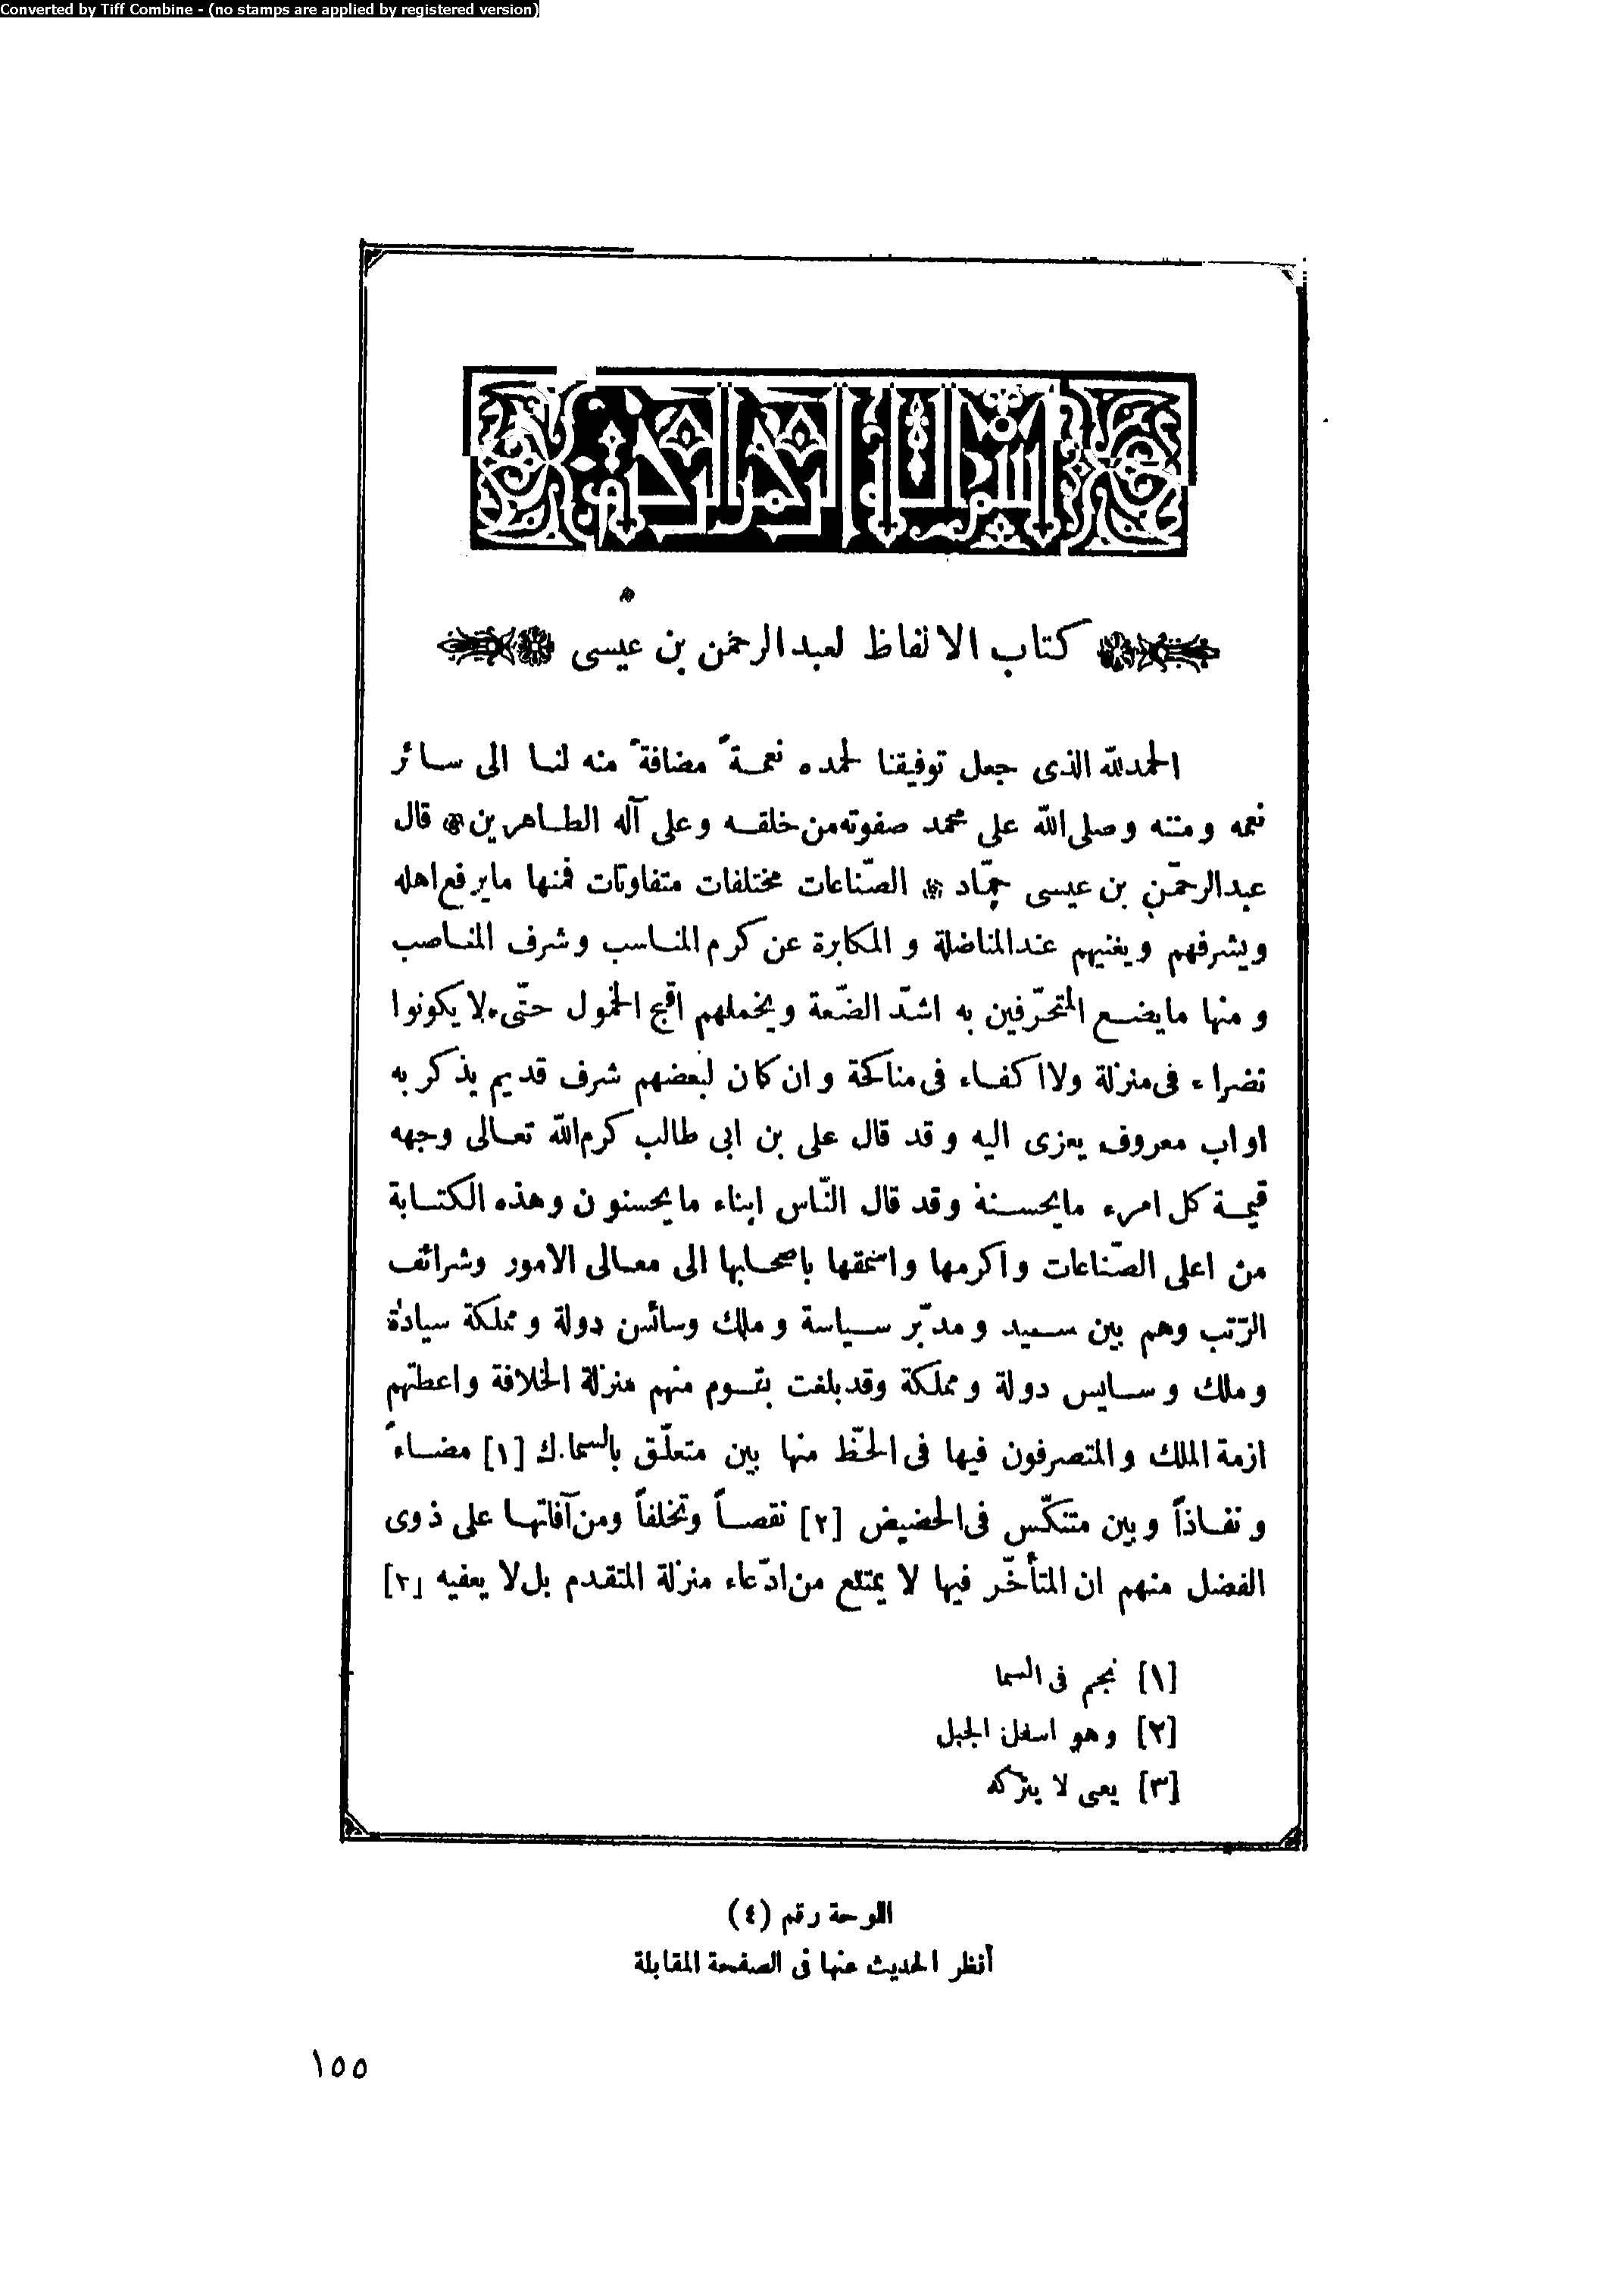 Converted by Tiff Combine - (no stamps are applied by registered version)
بسم الله الرحمن الرحيم
كتاب الالفاظ لعبدالرحمن بن عيسى
الحمدلله الذى جعل توفيقنا لحمده نعمةً مضافةً منه لنا الى سائر
نعمه ومننه وصلى الله على محمد صفوته من خلقه وعلى آله الطاهرين قال
عبدالرحمن بن عيسى حمّاد الصّناعات مختلفات متفاوتات فمنها مايرفع اهله
ويشرفهم ويغنيهم عندالمناضلة و المكابرة عن كرم المناسب وشرف المناصب
و منها مايضع المتحرّفين به اشدّ الضّعة ويخملهم اقبح الخمول حتّى لا يكونوا
نضراء فى منزلة ولا اكفاء فى مناكحة و ان كان لبعضهم شرف قديم يذكر به
او اب معروف يعزى اليه وقد قال على بن ابى طالب كرم الله تعالى وجهه
قيمة كل امرء مايحسنه وقد قال النّاس ابناء مايحسنون وهذه الكتابة
من اعلى الصّناعات واكرمها واسمقها باصحابها الى معالى الامور وشرائف
الرّتب وهم بين سيد ومدبّر سياسة وملك وسائس دولة ومملكة سيادة
وملك وسايس دولة ومملكة وقدبلغت بقوم منهم منزلة الخلافة واعطتهم
ازمة الملك والمتصرفون فيها فى الحّظ منها بين متعلّق بالسماك [١] مضاءً
ونفاذاً وبين متنكّس فى الحضيض [٢] نقصاً وتخلفاً ومن آفاتها على ذوى
الفضل منهم ان المتأخّر فيها لا يمتنع من ادّعاء منزلة المتقدم بل لا يعفيه [٣]
[١] نجم فى السما
[٢] وهو اسفل الجبل
[٣] يعى لا يتركه
اللوحة رقم (٤)
أنظر الحديث عنها فى الصفحة المقابلة
١٥٥